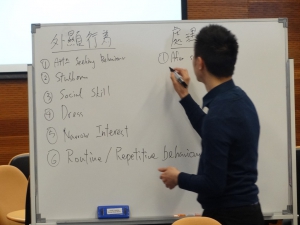 外顯行為
① Att. Seeking behaviour
② Stubborn
③ Social Skill
④
⑤ Narrow Interest
⑥ Routine / Repetitive behaviour
處
①